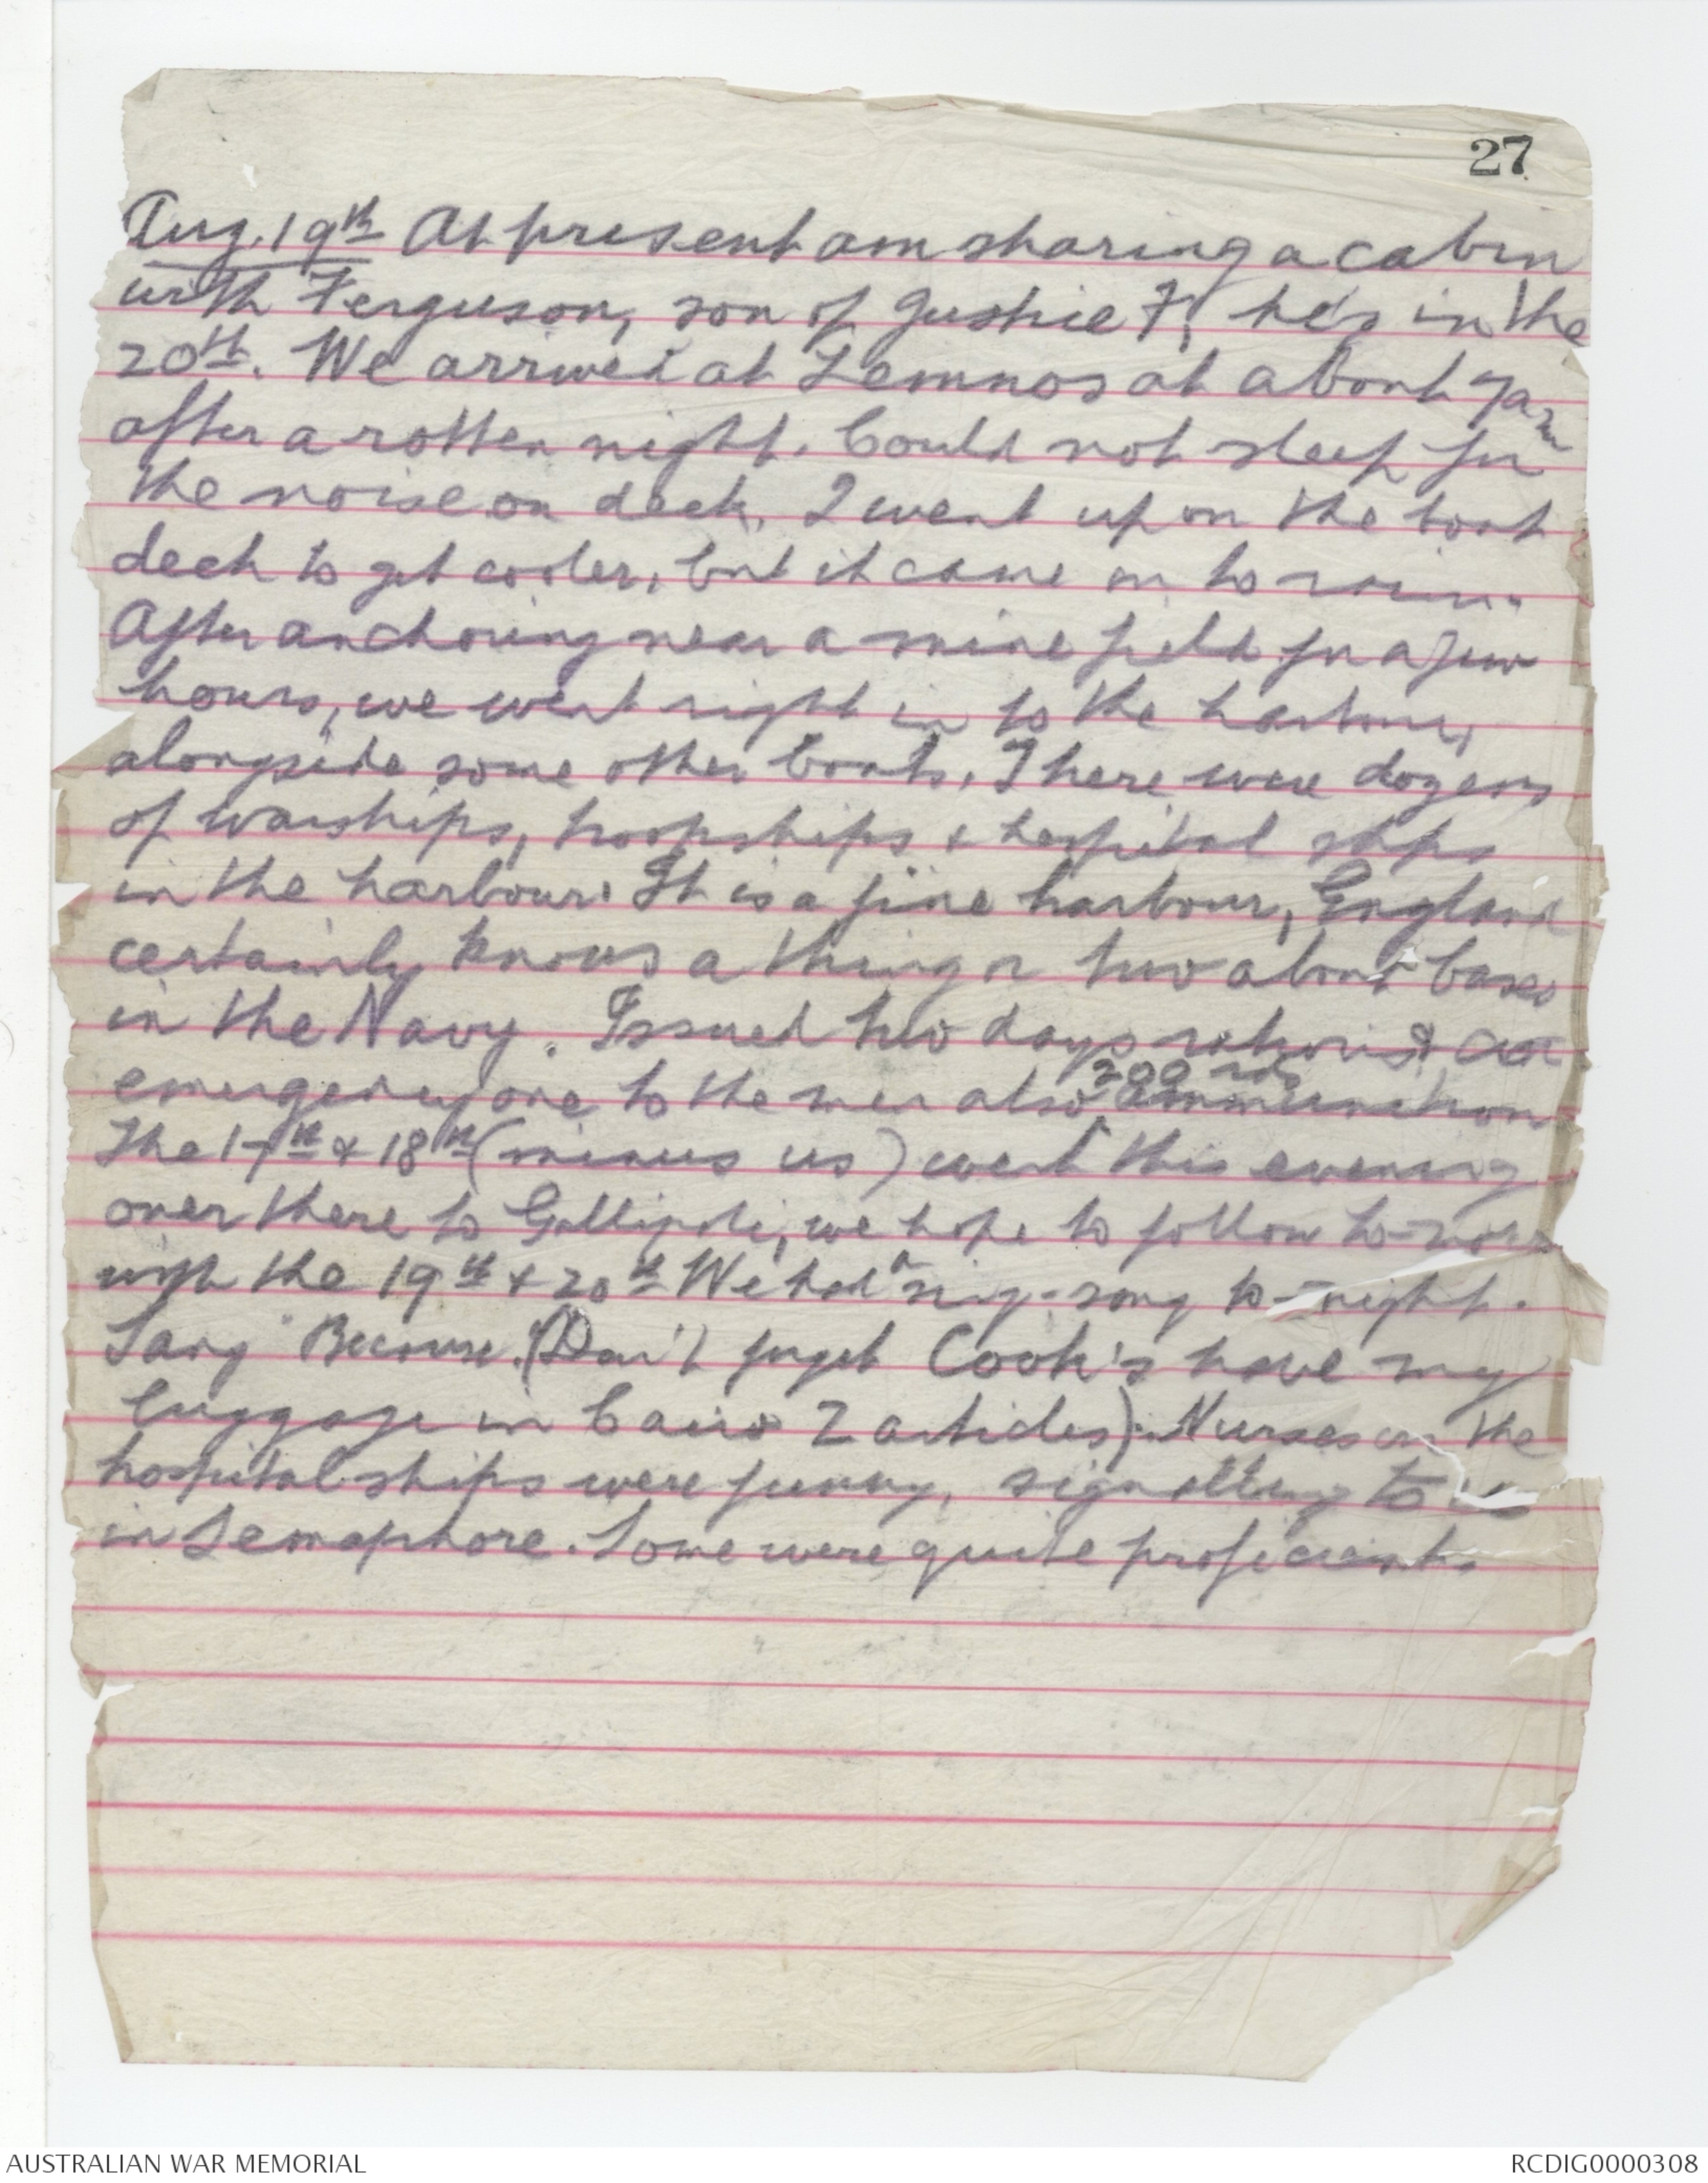 27
Aug. 19th At present am sharing a cabin
with Ferguson, son of Justice F, he's in the
20th. We arrived at Lemnos at about 7am
after a rotten night. Could not sleep for
the noise on deck. I went up on the boat
deck to get cooler, but it came on to rain.
After anchoring near a mine field for a few
hours, we went right in to the harbour,
alongside some other boats. There were dozens
of warships, troopships & hospital ships
in the harbour. It is a fine harbour, England
certainly knows a thing or two about bases
in the Navy. Issued two days rations &
emergency one to the men also 200 rds ammunition
The 17th & 18th (minus us) went this evening
over there to Gallipoli, we hope to follow to-morr
with the 19th & 20th We had a sing-song to-night.
Sang "Because". (Don't forget Cook's have my
luggage in Cairo 2 articles). Nurses on the
hospital ships were funny, signalling to us
in Semaphore. Some were quite proficient.
AUSTRALIAN WAR MEMORIAL
RCDIG0000308